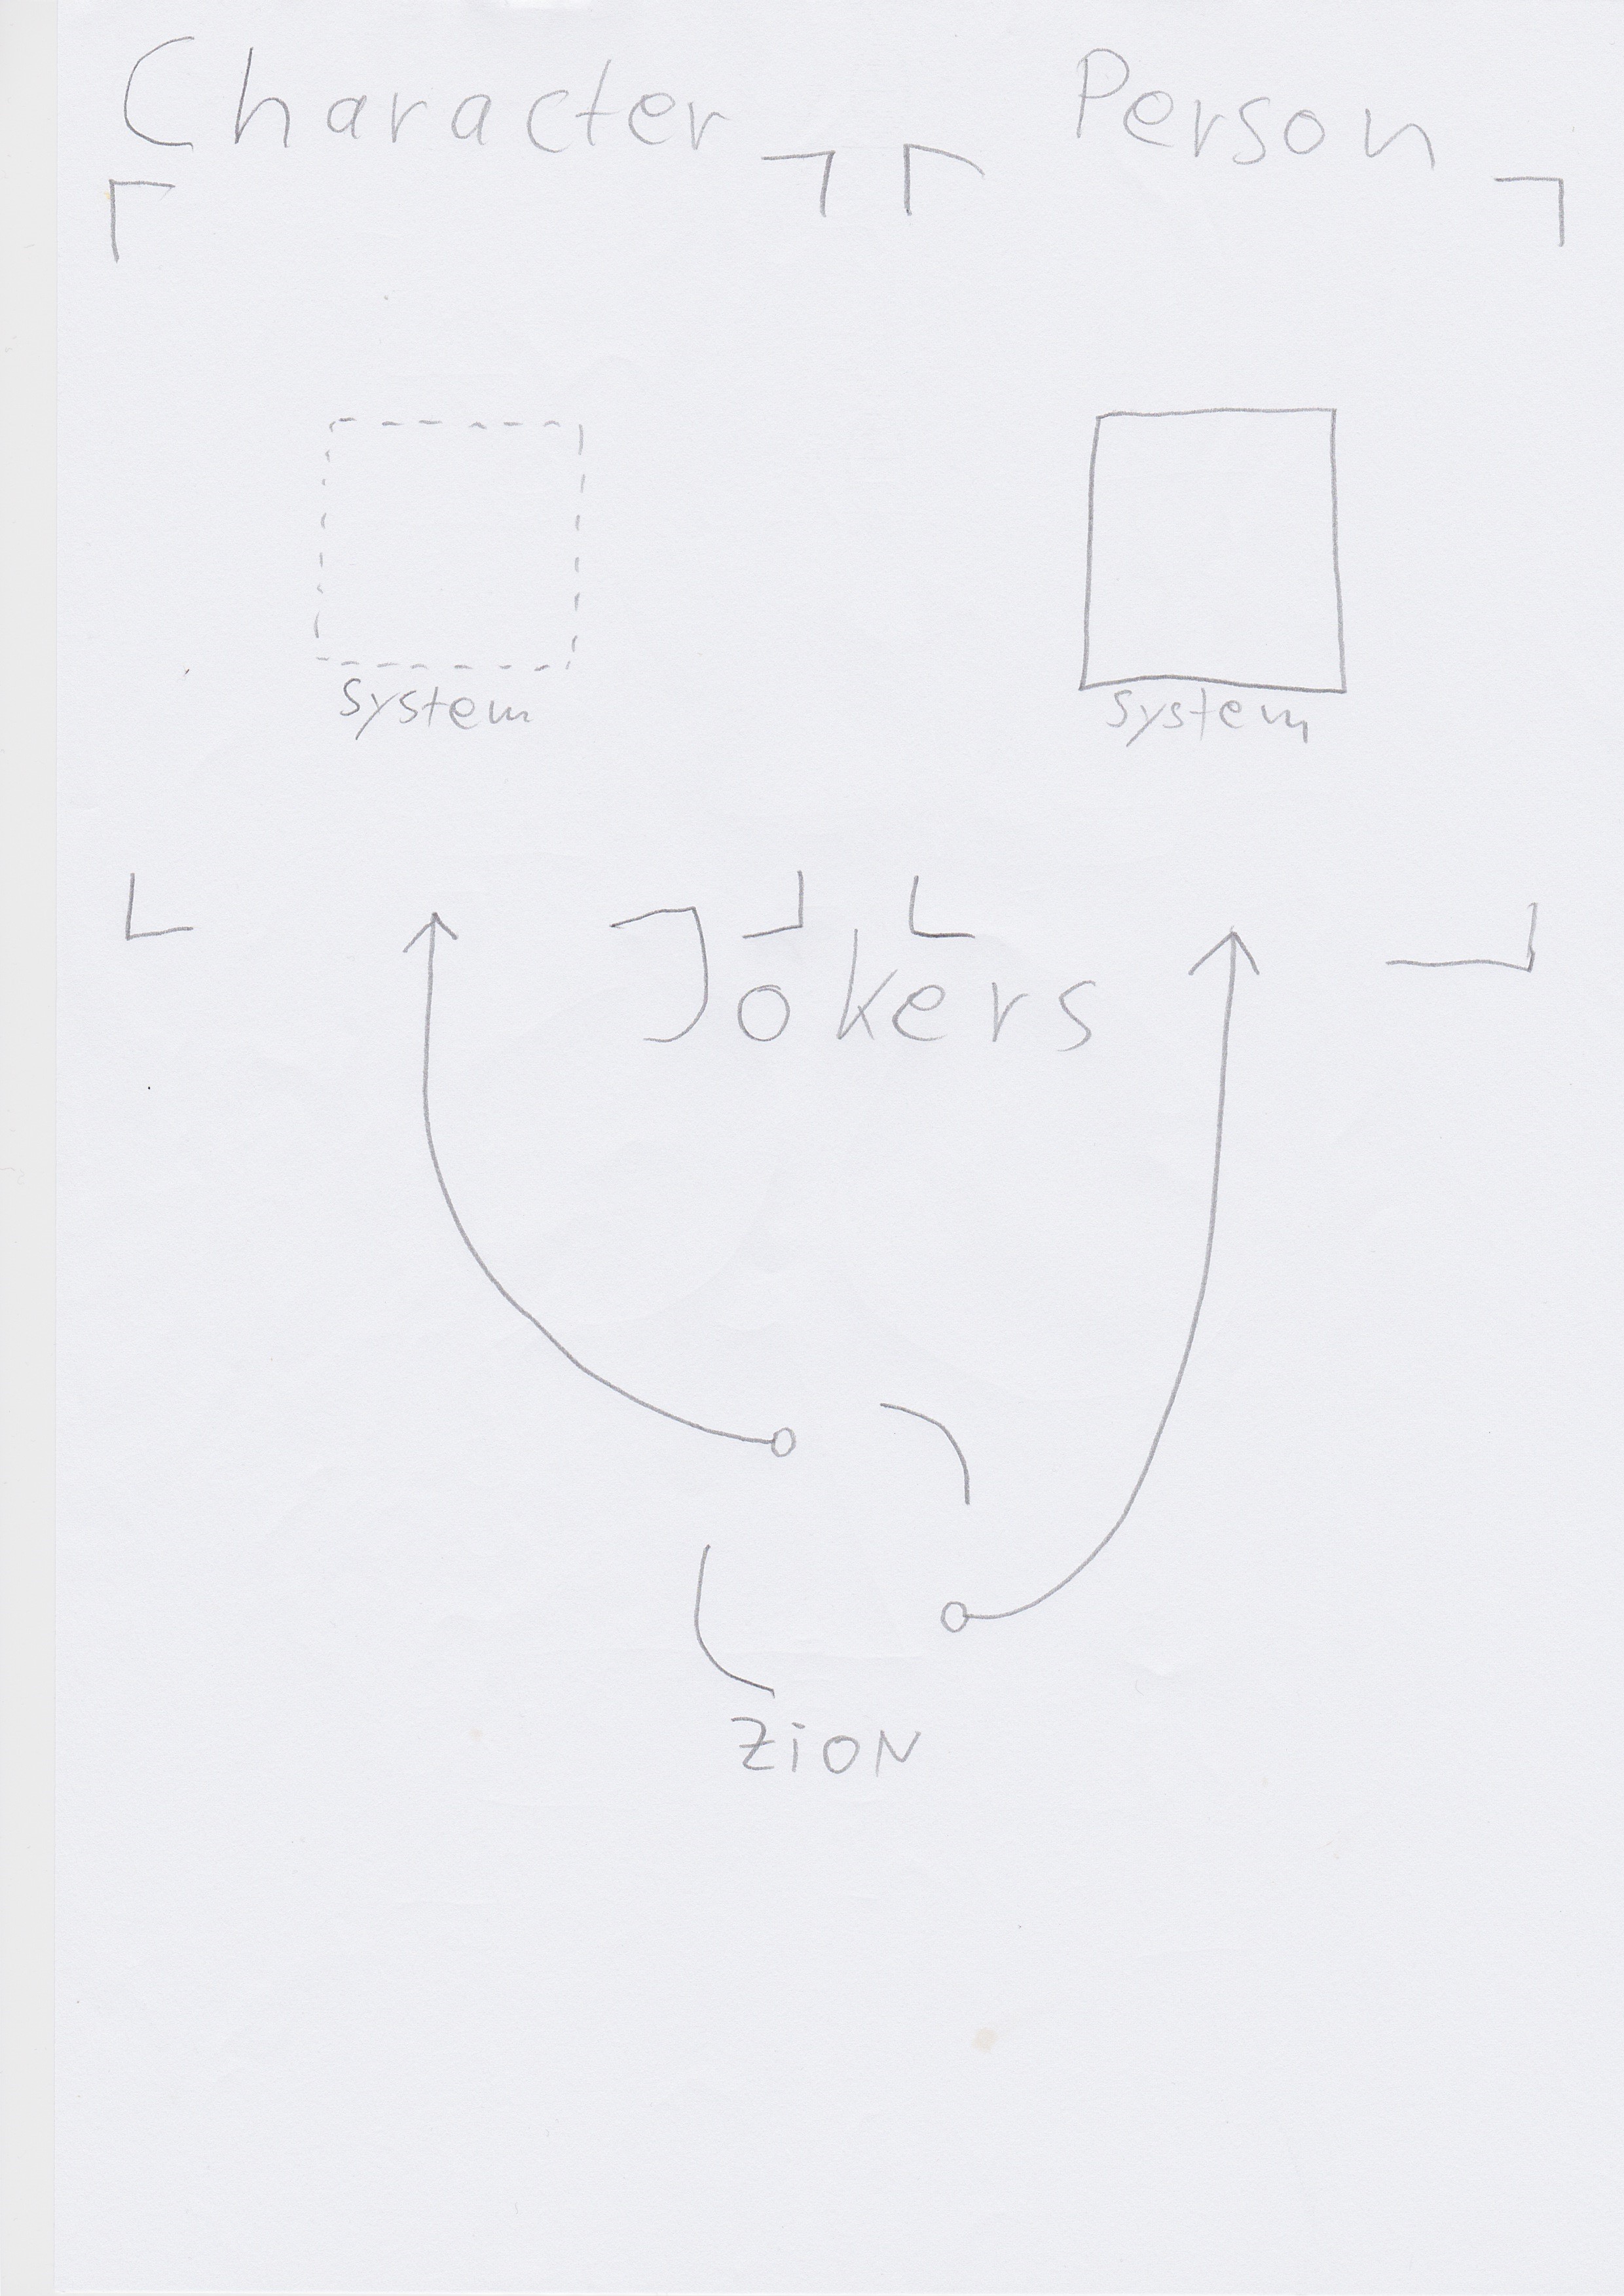 Character Person
system system
Jokers
ZiON